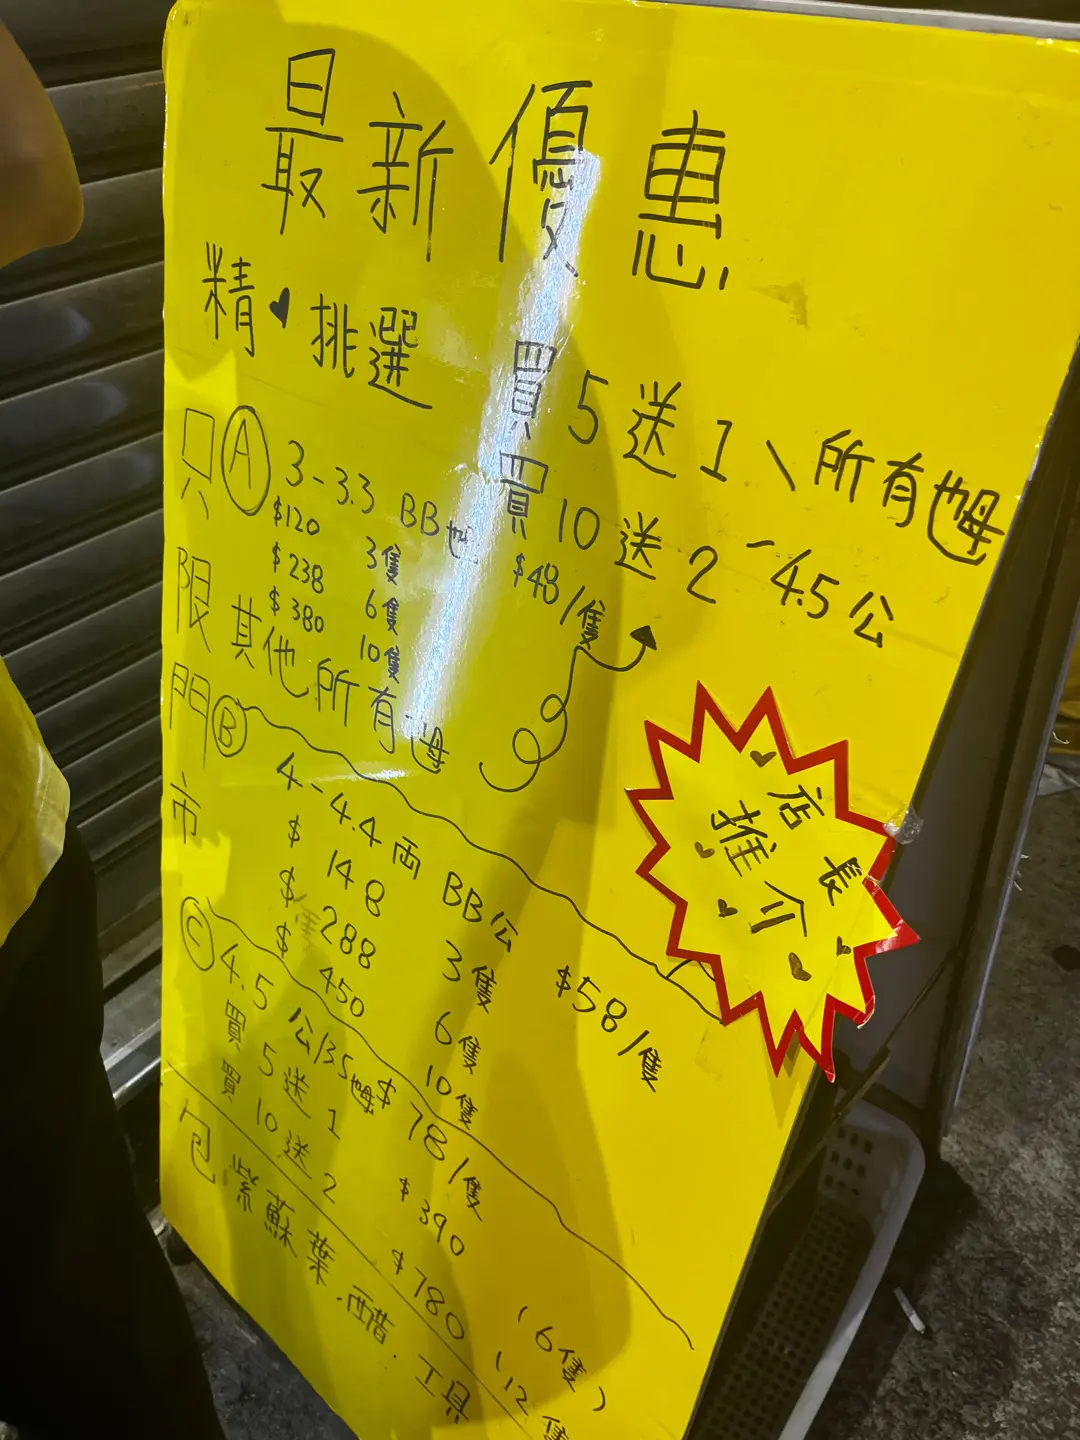 最新優惠
精♥挑選
買5送1、所有乸
買10送2 -4.5公
只限門市
Ⓐ 3-3.3 BB乸 $48/隻
$120 3隻
$238 6隻
$380 10隻
其他所有乸
Ⓑ 4-4.4両 BB公 $58/隻
$148 3隻
$288 6隻
$450 10隻
Ⓒ 4.5公/3.5乸 $78/隻
買5送1 $390 (6隻)
買10送2 $780 (12隻
包紫蘇葉.醋.工具
店長
推介